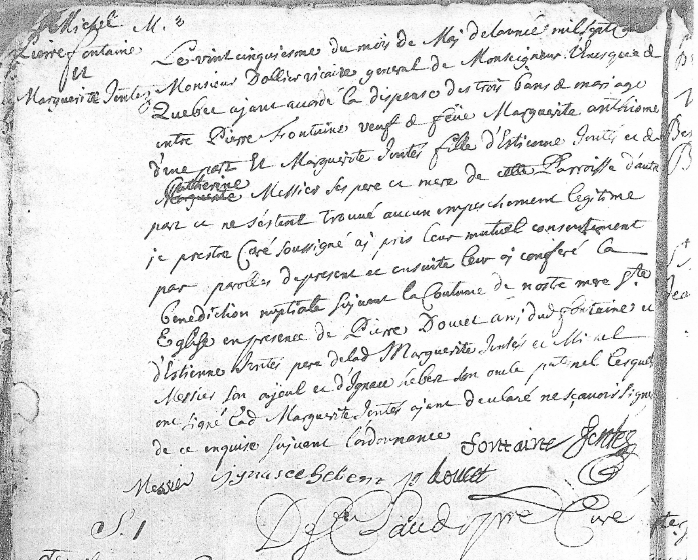 St Michel M.
Pierre fontaine
Et
Marguerite Jentes
Le vint cinquiesme du mois de May delannée mil sept
Monsieur Dollier vicaire general de Monseigneur Levesque de
Quebec ajant accordé la dispense des trois bans de mariage
entre Pierre Frontaine veuf de feüe Marguerite anthiome
d'une part Et Marguerite Jentes fille d'Estienne Jentes et de
Catherine
Marguerite Messier ses pere et mere de cette Parroisse d'autre
part et ne s'estant trouvé aucun empeschement legitime
je prestre Curé soussigné aj pris leur mutuel consentement
par parolles de present et ensuite leur aj conferé la
benediction nuptiale sujvant la Coutume de nostre mere Ste
Eglise en presence de Pierre Doucet ami dud fontaine et
d'Estienne Jentes pere delad Marguerite Jentes et Michel
Messier son ajeul et d'Ignace hebert son oncle paternel lesquels
ont signé Lad Marguerite Jentes ajant declaré ne sçavoir signer
de ce enquise sujvant l'ordonnance fontaine Jentes
Messier ignasce heber jp doucet
S. 1 Claud ptre Curé